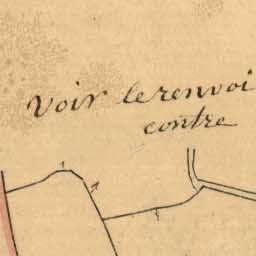 Voir le renvoi
contre